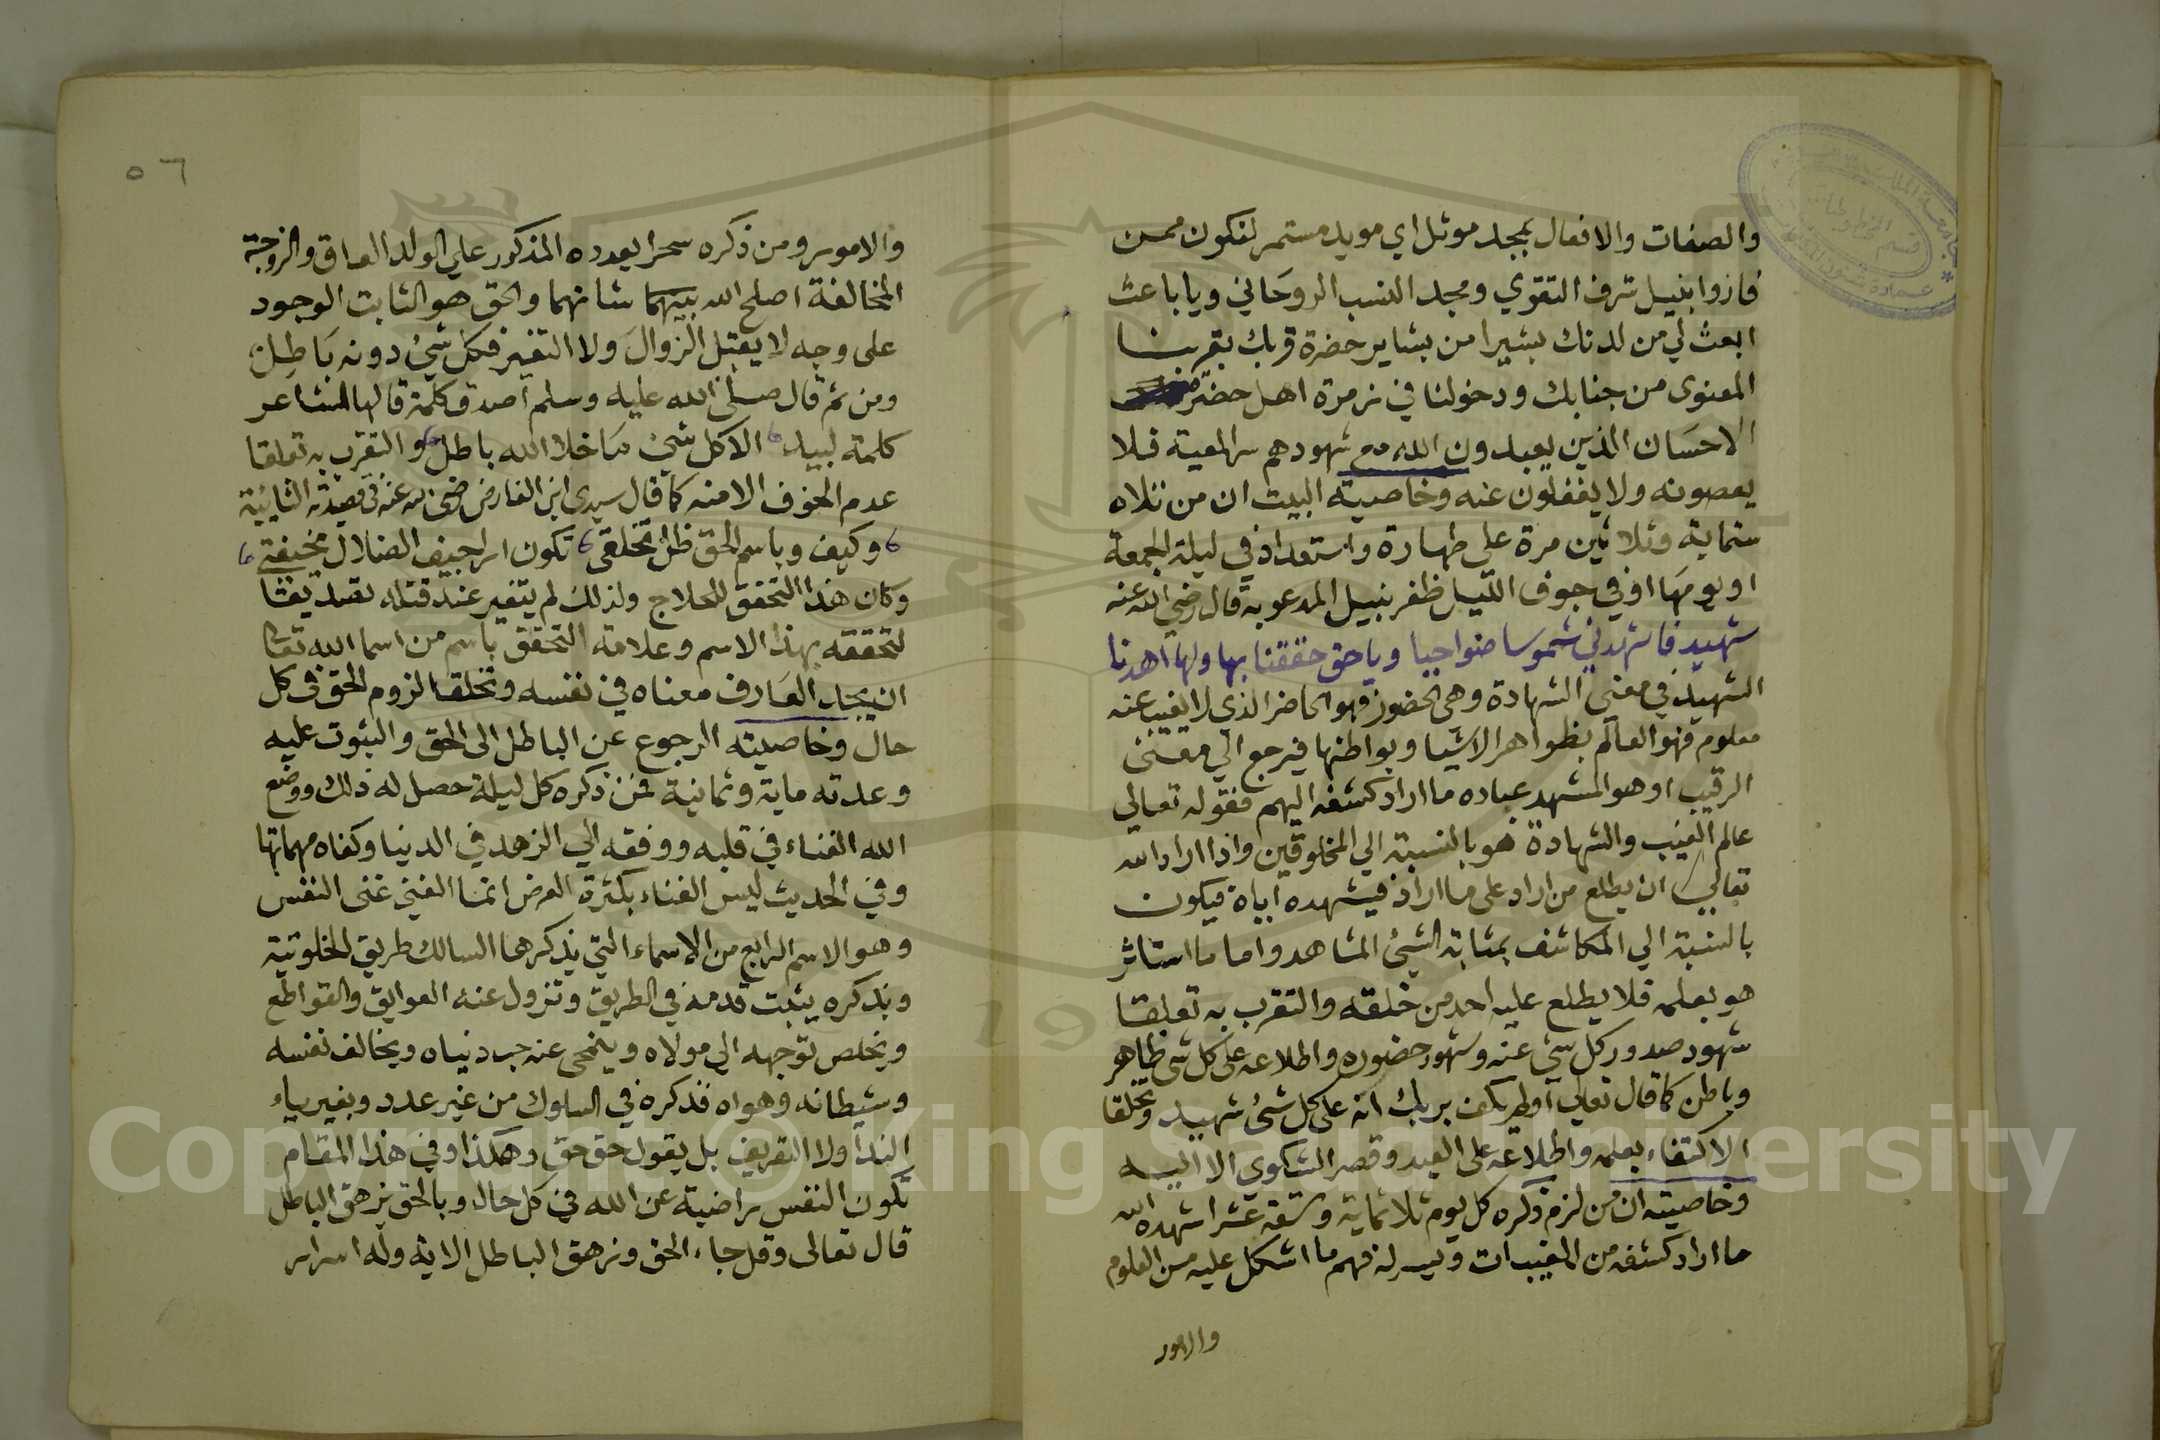 والصفات والافعال بمجد موثل اي مويد مستمر لنكون ممن
فازوا بنيل شرف التقوي ومجد النسب الروحاني ويا باعث
ابعث لي من لدنك بشيرا من بشاير حضرة قربك بقربنا
المعنوى من جنابك ودخولنا في زمرة اهل حضرة
الاحسان الذين يعبدون الله مع شهودهم سر المعية فلا
يعصونه ولا يغفلون عنه وخاصية البيت ان من تلاه
ستماية وثلاثين مرة على طهارة واستعداد في ليلة الجمعة
او يومها او في جوف الليل ظفر بنيل المدعو به قال رضي الله عنه
شهيد فاشهدني شموسا ضواحيا وياحق حققنا بها ولها اهدنا
الشهيد في معنى الشهادة وهى الحضور فهو الحاضر الذي لا يغيب عنه
معلوم فهو العالم بظواهر الاشيا وبواطنها فيرجع الي معنى
الرقيب او هو المشهد عباده ما اراد كشفه اليهم فقوله تعالي
عالم الغيب والشهادة هو بالنسبة الي المخلوقين واذا اراد الله
تعالي ان يطلع من اراد على ما اراد فيشهده اياه فيكون
بالنسبة الي المكاشف بمثابة الشئ المشاهد واما ما استاثر
هو بعلمه فلا يطلع عليه احد من خلقه والتقرب به تعلقا
شهود صدور كل شئ عنه وشهود حضوره واطلاعه على كل شئ ظاهر
وباطن كما قال تعالي اولم يكف بربك انه على كل شئ شهيد وتخلقا
الاكتفاء بعلمه واطلاعه على العبد وقصر الشكوى الا اليه
وخاصيته ان من لزم ذكره كل يوم ثلاثماية وتسعة عشر اشهده الله
ما اراد كشفه من المغيبات ويسر له فهم ما اشكل عليه من العلوم
والامور
٥٦
والامور ومن ذكره سحرا بعدده المذكور على الولد العاق والزوجة
المخالفة اصلح الله بينهما شانهما والحق هو الثابت الوجود
على وجه لا يقبل الزوال ولا التغير فكل شئ دونه باطل
ومن ثم قال صلى الله عليه وسلم اصدق كلمة قالها الشاعر
كلمة لبيد الا كل شئ ما خلا الله باطل والتقرب به تعلقا
عدم الخوف الا منه كما قال سيدي ابن الفارض رضى الله عنه في قصيدته التائية
وكيف وباسم الحق ظل تخلقي تكون اراجيف الضلال مخيفتي
وكان هذا التحقق للحلاج ولذلك لم يتغير عند قتله
لتحققه بهذا الاسم وعلامة التحقق باسم من اسما الله تعا
ان يجد العارف معناه في نفسه وتخلقا لزوم الحق في كل
حال وخاصيته الرجوع عن الباطل الى الحق والثبوت عليه
وعدته ماية وثمانية فمن ذكره كل ليلة حصل له ذلك ووضع
الله الغناء في قلبه ووفقه الي الزهد في الدنيا وكفاه مهماتها
وفي الحديث ليس الغناء بكثرة العرض انما الغني غنى النفس
وهو الاسم الرابع من الاسماء التي يذكرها السالك طريق الخلوتية
وبذكره يثبت قدمه في الطريق وتزول عنه العوايق والقواطع
ويخلص توجهه الي مولاه وينمحى عنه حب دنياه ويخالف نفسه
وشيطانه وهواه فذكره في السلوك من غير عدد وبغير ياء
الندا ولا التعريف بل يقول حق حق وهكذا وفي هذا المقام
تكون النفس راضية عن الله في كل حال وبالحق يزهق الباطل
قال تعالى وقل جاء الحق وزهق الباطل الاية وله اسرار